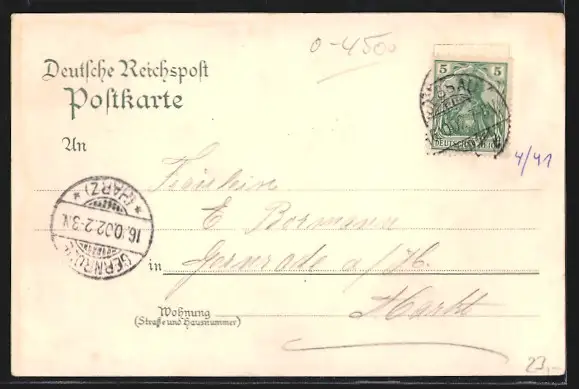 0-4500
Deutsche Reichspost
Postkarte
5 5
DESSAU
DEUTSCHES REICH
An
4/41
Fräulein
E Bormann
in Gernrode a/H.
Markt
GERNRODE
(HARZ)
16.10.02.2-3N.
Wohnung
(Straße und Hausnummer)
23,-